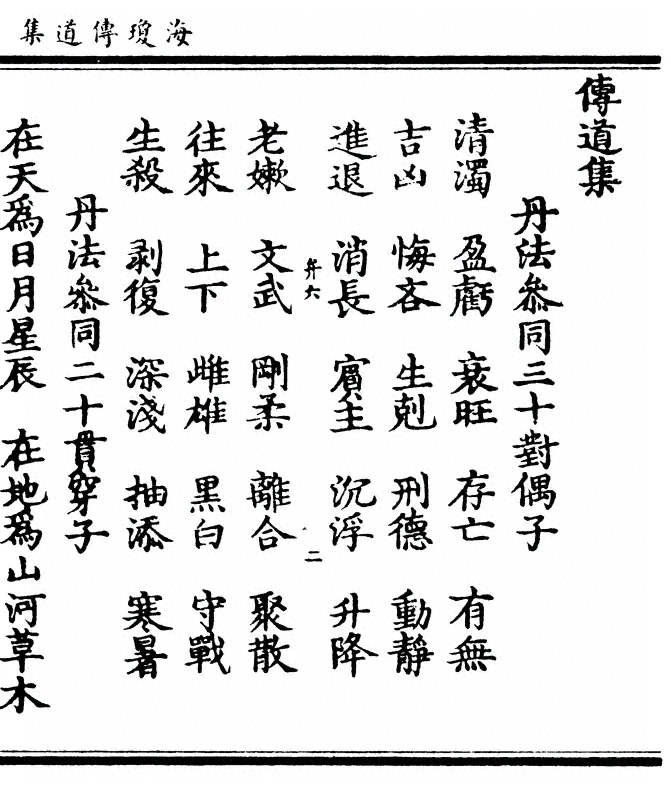 海瓊傳道集
傳道集
丹法參同三十對偶子
清濁 盈虧 衰旺 存亡 有無
吉凶 悔吝 生剋 刑德 動靜
進退 消長 賓主 沉浮 升降
弁六 二
老嫰 文武 剛柔 離合 聚散
往來 上下 雌雄 黑白 守戰
生殺 剥復 深淺 抽添 寒暑
丹法參同二十貫穿子
在天爲日月星辰 在地爲山河草木